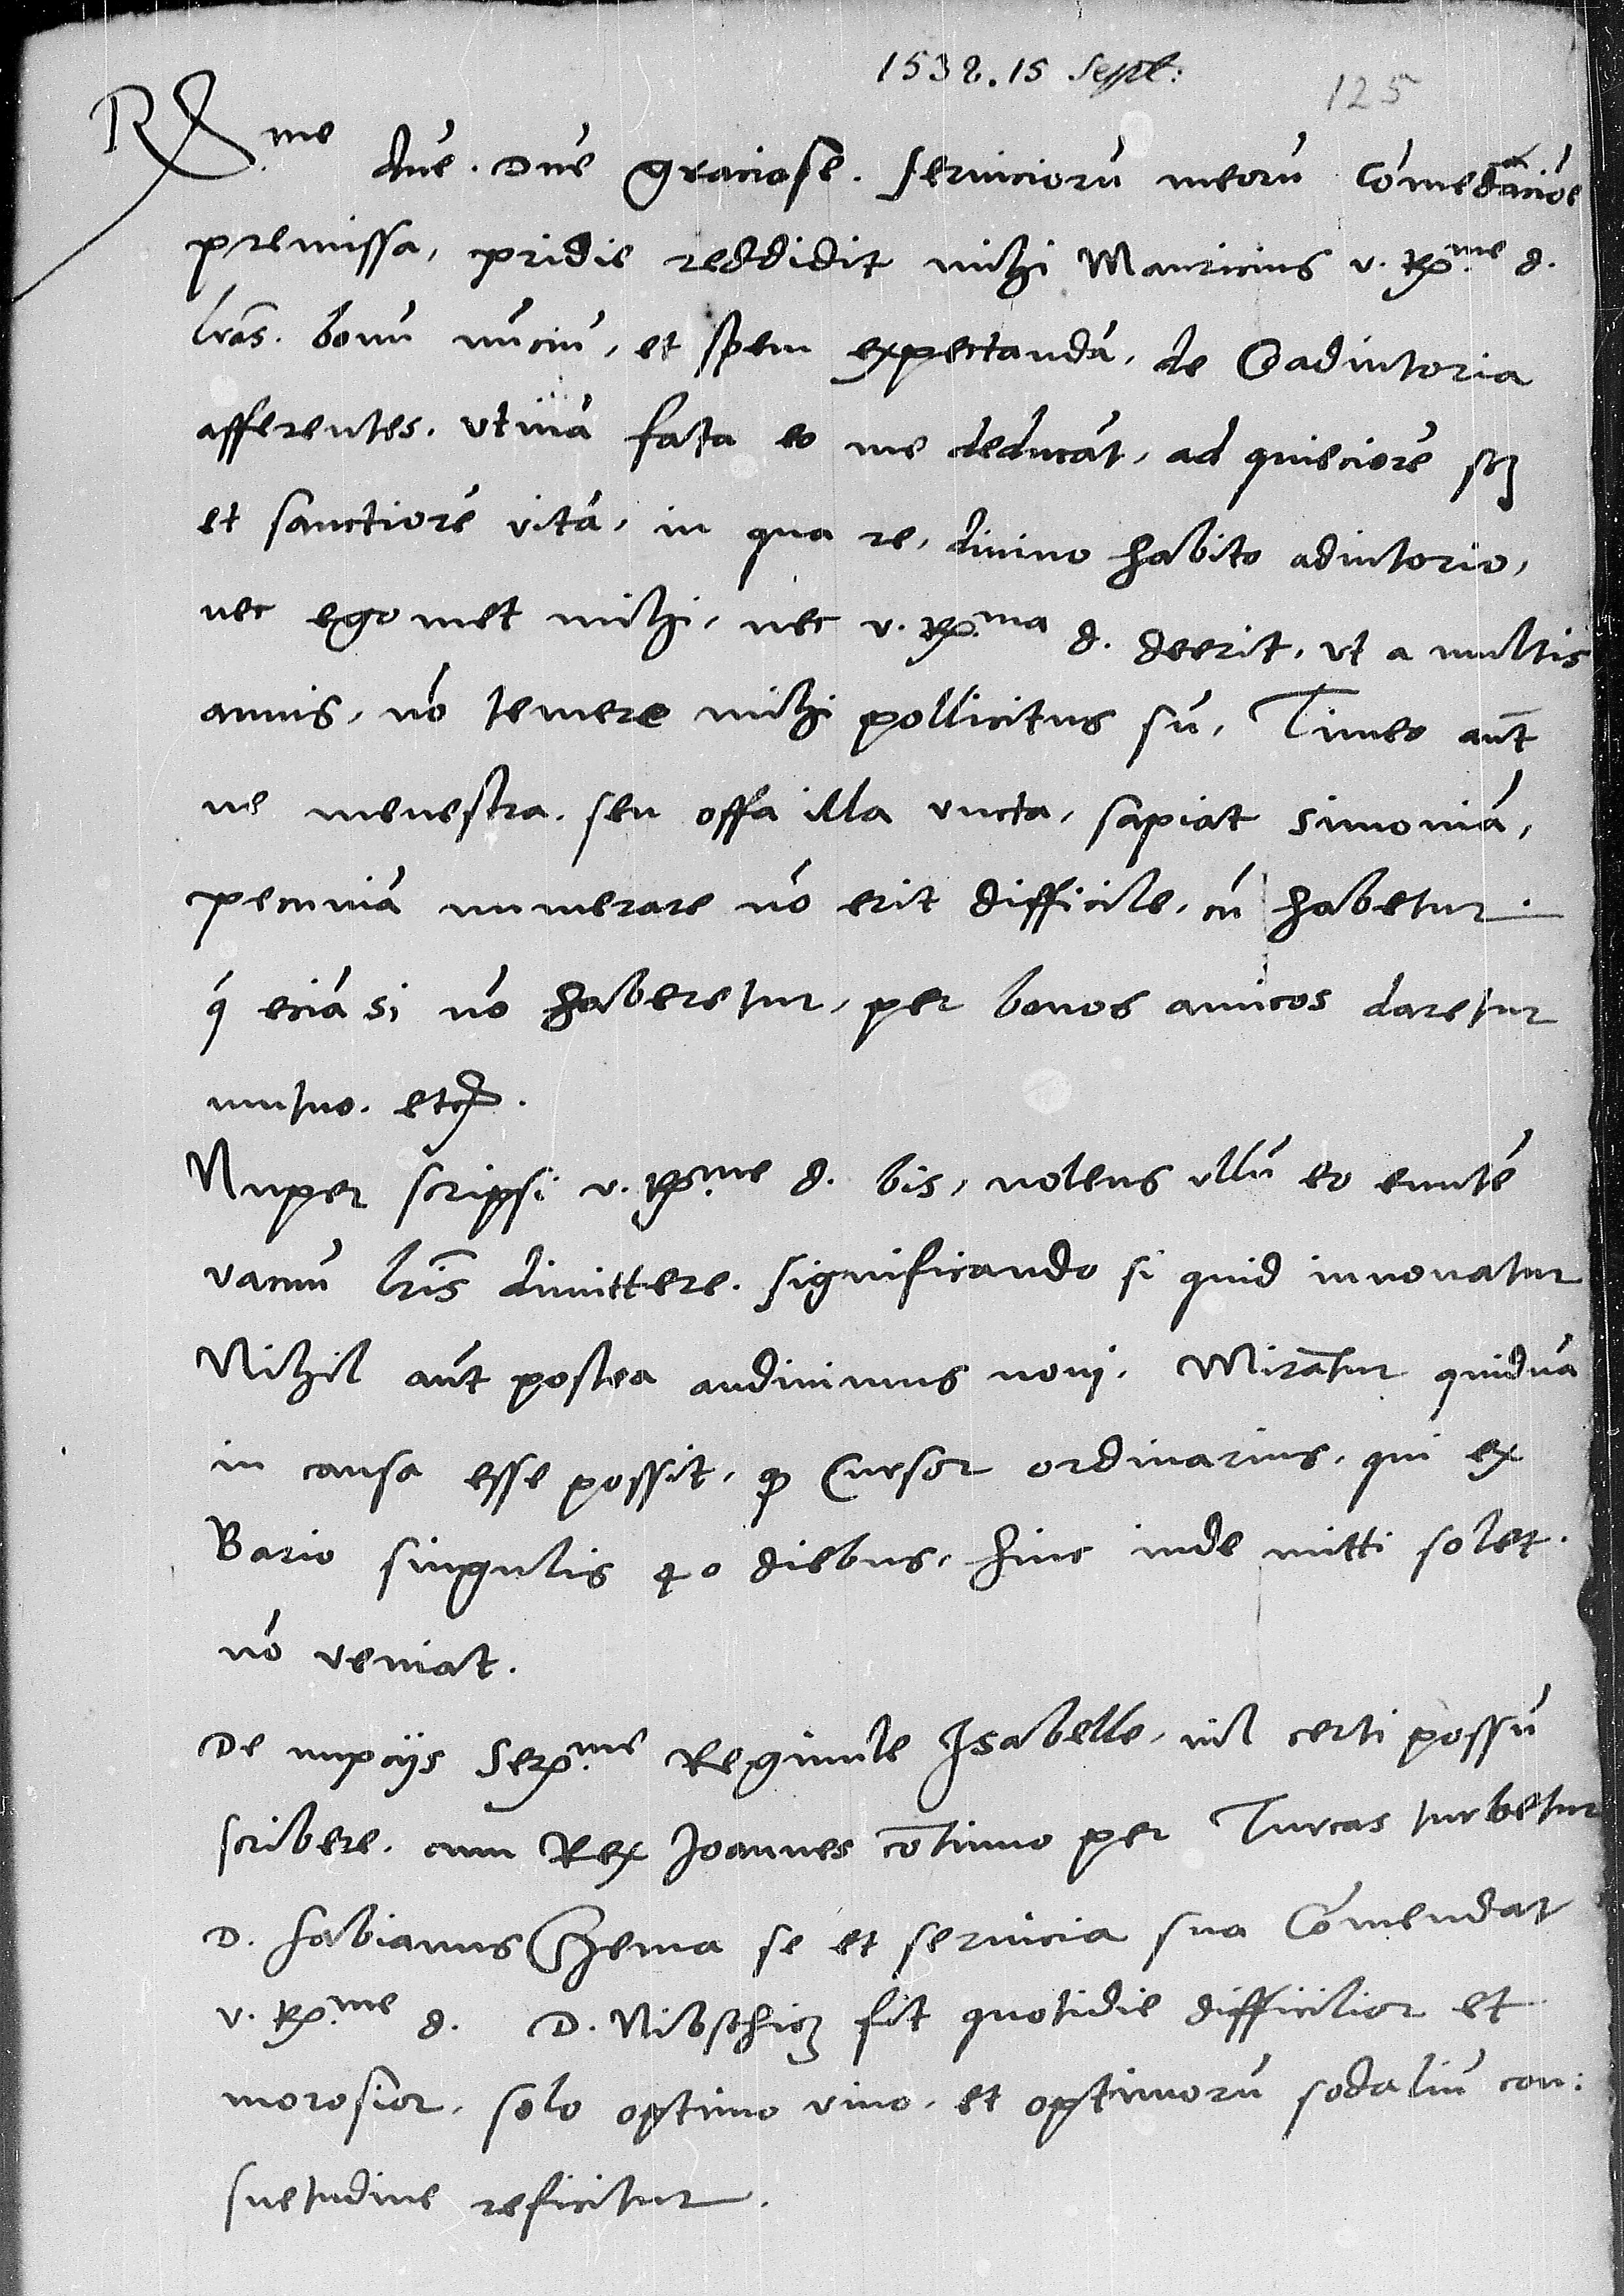 1538. 15 Sept:
125
R.me dne. Dne graciose. Serviciorũ meorũ Cõmendaciõe
premissa, pridie reddidit mihi Mauricius v. R.me d.
lrãs. bonũ nũciũ, et spem expectandã, de Coadiutoria
afferentes. Vtinã fata eo me deducãt, ad quieciorẽ scz
et sanctiorẽ vitã, in qua re, divino habito adiutorio,
nec egomet mihi, nec v. R.ma d. deerit, vt a multis
annis, nõ temere mihi pollicitus sũ, Timeo aũt
ne menestra. seu offa illa vncta, sapiat simoniã,
pecuniã numerare nõ erit difficile, cũ habetur.
q̃ eciã si nõ haberetur, per bonos amicos daretur
mutuo. etc.
Nuper scripsi v. R.me d. bis, nolens vllũ eo euntẽ
vacuũ lrĩs dimittere. significando si quid innovatur
Nihil aũt postea audivimus novi. Mirãtur quidnã
in causa esse possit, q Cursor ordinarius, qui ex
Bario singulis 40 diebus, hinc inde mitti solet.
nõ veniat.
De nupcijs Ser.me Reginule Isabelle, nil certi possũ
scribere. cum Rex Joannes cõtinuo per Turcas turbetur
D. Fabianus Czema se et servicia sua Cõmendat
v. R.me d. D. Nibschicz fit quotidie difficilior et
morosior, solo optimo vino, et optimorũ sodaliũ con:
suetudine reficitur.